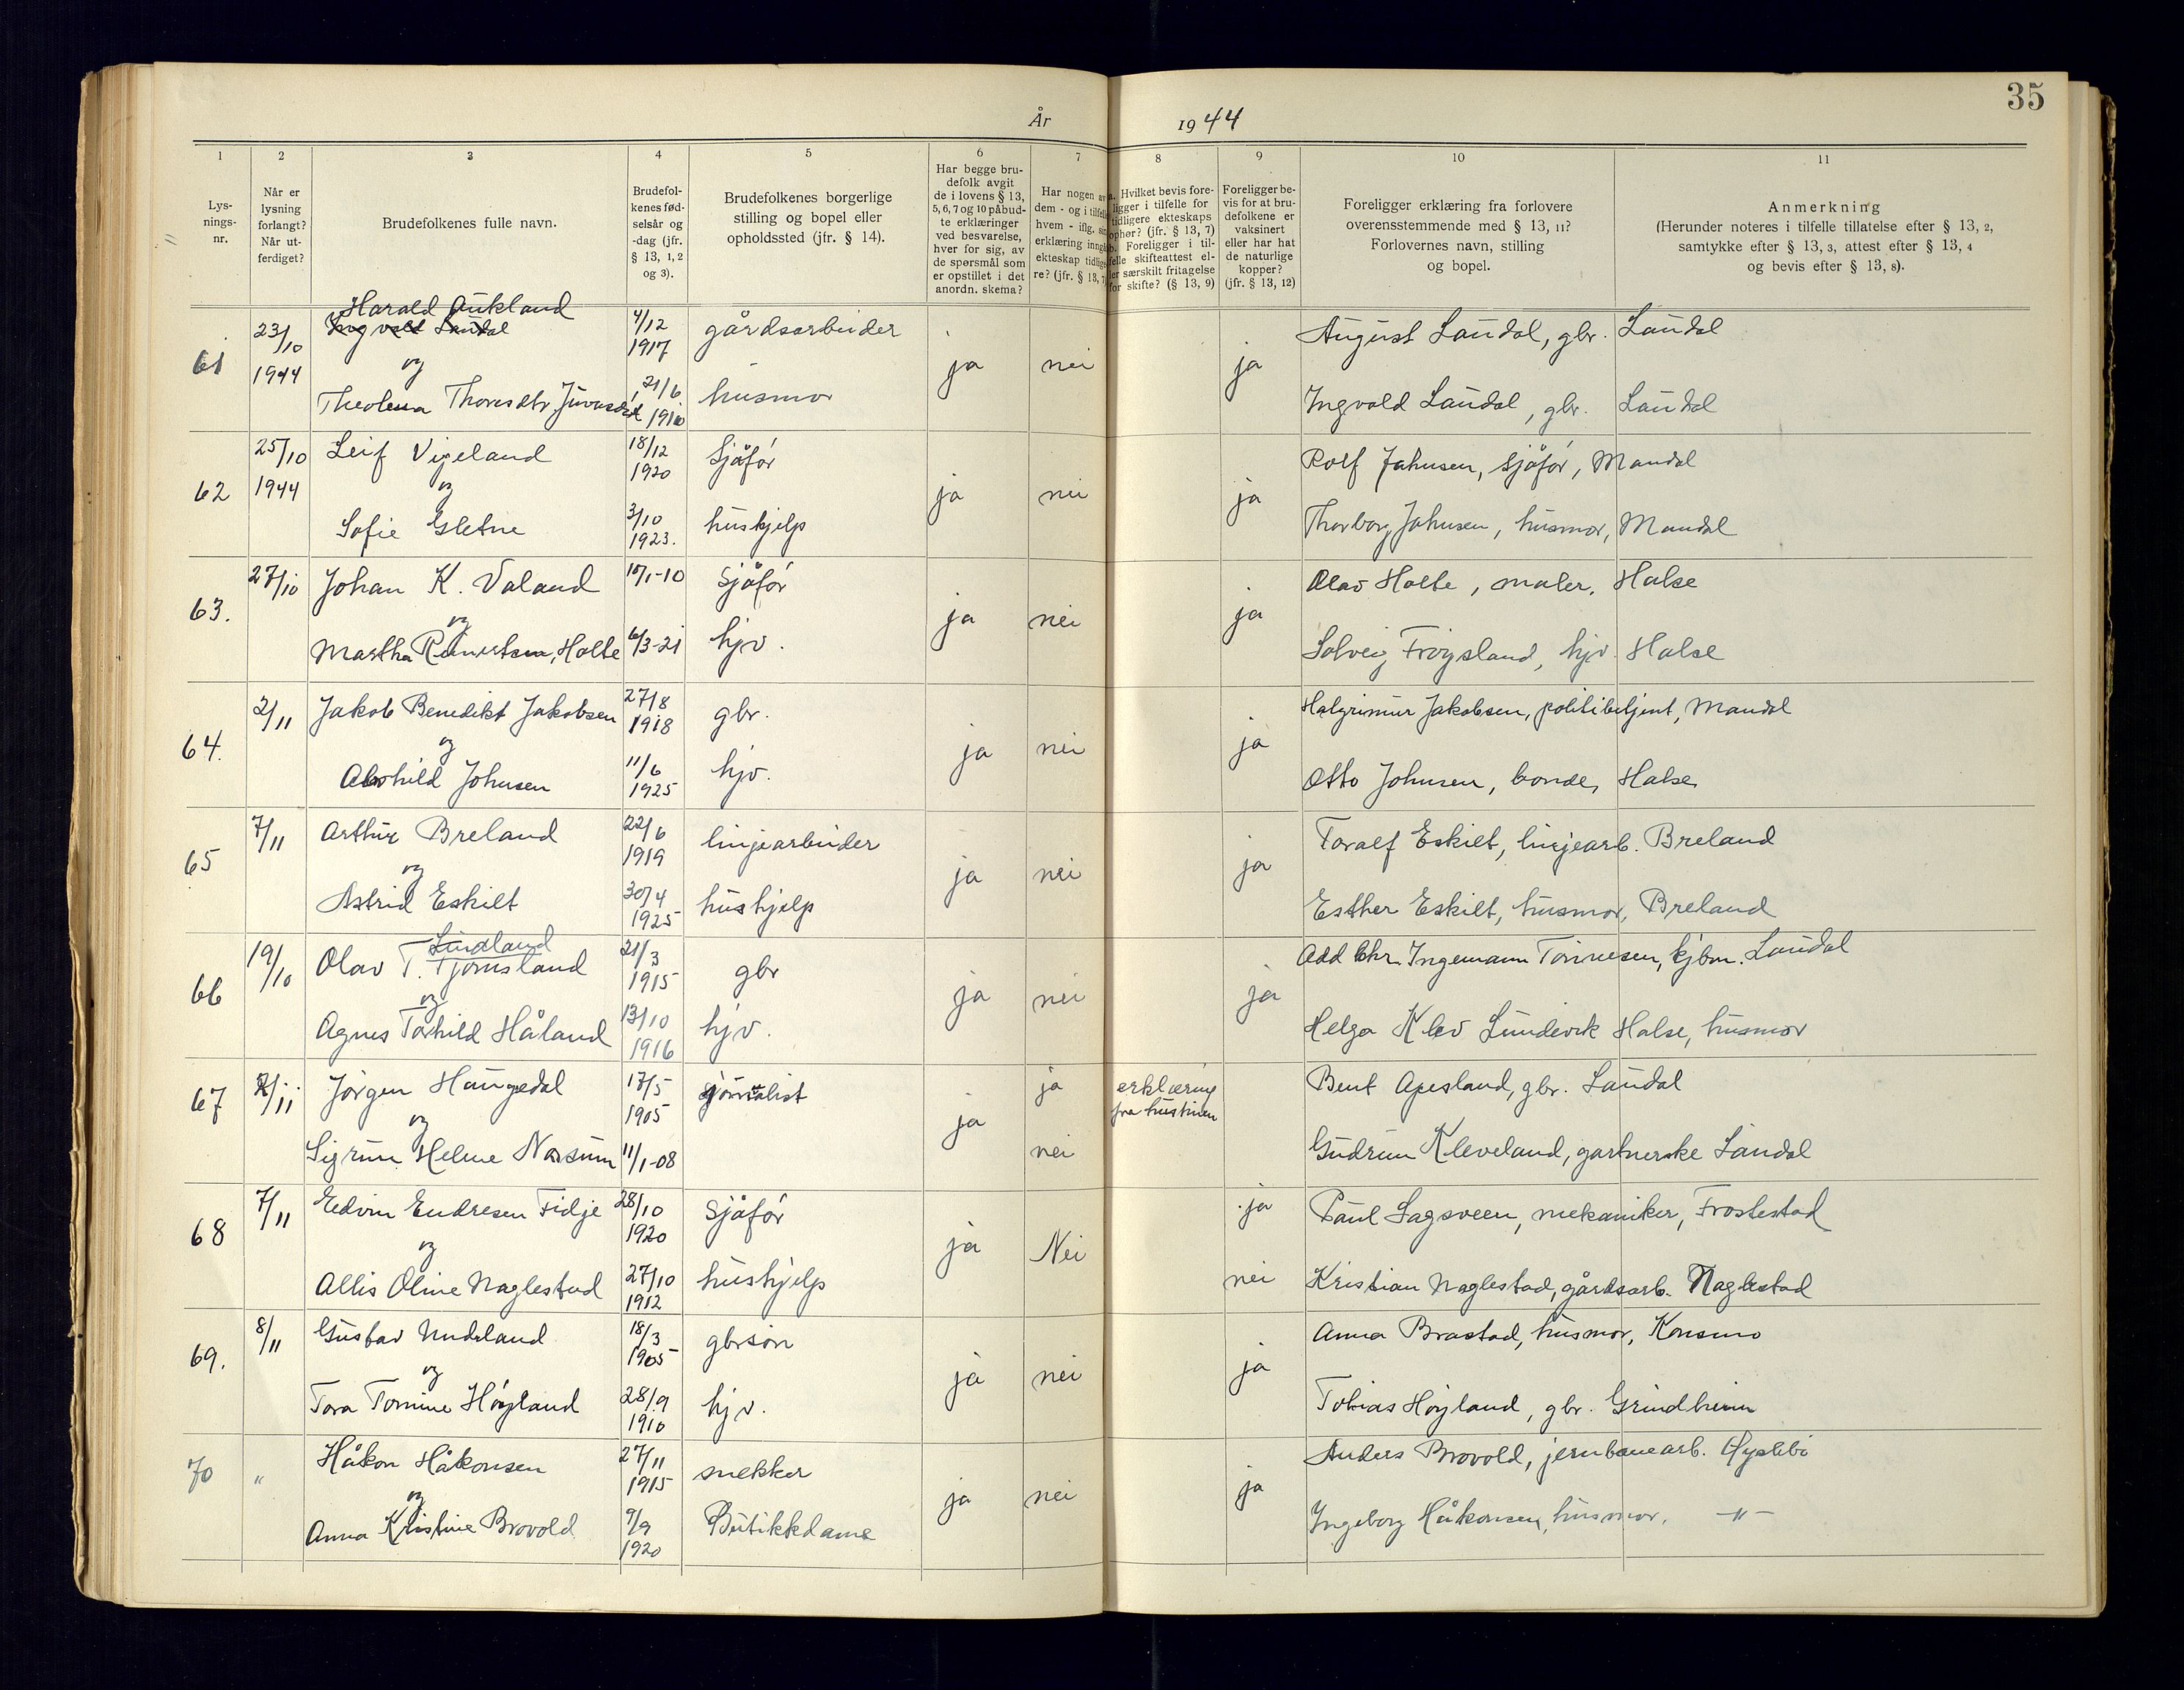 35
År 1944
1 2 3 4 5 6 7 8 9 10 11
Lysnings-nr.
Når er lysning forlangt? Når utferdiget?
Brudefolkenes fulle navn.
Brudefolkenes fødselsår og -dag (jfr. § 13, 1, 2 og 3).
Brudefolkenes borgerlige stilling og bopel eller opholdssted (jfr. § 14).
Har begge brudefolk avgit de i lovens § 13, 5, 6, 7 og 10 påbudte erklæringer ved besvarelse, hver for sig, av de spørsmål som er opstillet i det anordn. skema?
Har nogen av dem - og i tilfelle hvem - iflg. sin erklæring inngått ekteskap tidligere? (jfr. § 13, 7
Hvilket bevis foreligger i tilfelle for tidligere ekteskaps ophør? (jfr. § 13, 7)
Foreligger i tilfelle skifteattest eller særskilt fritagelse for skifte? (§ 13, 9)
Foreligger bevis for at brudefolkene er vaksinert eller har hat de naturlige kopper? (jfr. § 13, 12)
Foreligger erklæring fra forlovere overensstemmende med § 13, 11? Forlovernes navn, stilling og bopel.
Anmerkning (Herunder noteres i tilfelle tillatelse efter § 13, 2, samtykke efter § 13, 3, attest efter § 13, 4 og bevis efter § 13, 8).
61 23/10 1944 Harald Aukland
Ingvald Laudal 4/12 1917 gårdsarbeider ja nei ja August Laudal, gbr. Laudal
og
Theolena Thoresdtr. 21/6 1910 husmor Ingvald Laudal, gbr. Laudal
62 25/10 1944 Leif Vigeland 18/12 1920 Sjåfór ja nei ja Rolf Johnsen, sjåfór, Mandal
og
Sofie Gletne 3/10 1923. hushjelp Thorborg Johnsen, husmor, Mandal
63. 27/10 Johan K. Valand 10/1-10 Sjåfór ja nei ja Olav Holte, maler, Halse
og
Martha Reinertsen, Holte 6/3-21 hjv. Solveig Frøysland, hjv. Halse
64. 2/11 Jakob Benedikt Jakobsen 27/8 1918 gbr. ja nei ja Halgrimur Jakobsen, politibetjent, Mandal
og
Alvhild Johnsen 11/6 1925 hjv. Otto Johnsen, bonde, Halse
65 7/11 Arthur Breland 22/6 1919 linjearbeider ja nei ja Toralf Eskilt, linjearb. Breland
og
Astrid Eskilt 30/4 1925 hushjelp Esther Eskilt, husmor, Breland
66 19/10 Lindland
Olav T. Tjomsland 21/3 1915 gbr ja nei ja Add Chr. Ingemann Tönnesen, kjbm. Laudal
og
Agnes Torhild Håland 13/10 1916 hjv. Helga Klev Lundevik Halse, husmor
67 2/11 Jörgen Haugedal 17/5 1905 journalist ja ja erklæring fra hustruen Bent Apesland, gbr. Laudal
og
Sigrun Helene Narsum 11/1-08 nei Gudrun Kleveland, gartnerske Laudal
68 7/11 Edvin Endresen Fidje 28/10 1920 Sjåfór ja Nei ja Paul Sagsveen, mekaniker, Frostestad
og
Allis Oline Naglestad 27/10 1912 hushjelp nei Kristian Naglestad, gårdsarb. Naglestad
69. 8/11 Gustav Undeland 18/3 1905 gbrsøn ja nei ja Anna Brastad, husmor, Konsmo
og
Tora Tomine Høyland 28/9 1910 hjv. Tobias Høyland, gbr. Grindheim
70 " Håkon Håkonsen 27/11 1915 snekker ja nei ja Anders Brovold, jernbanearb. Øyslebö
og
Anna Kristine Brovold 9/9 1920 Butikkdame Ingeborg Håkonsen, husmor. -"-